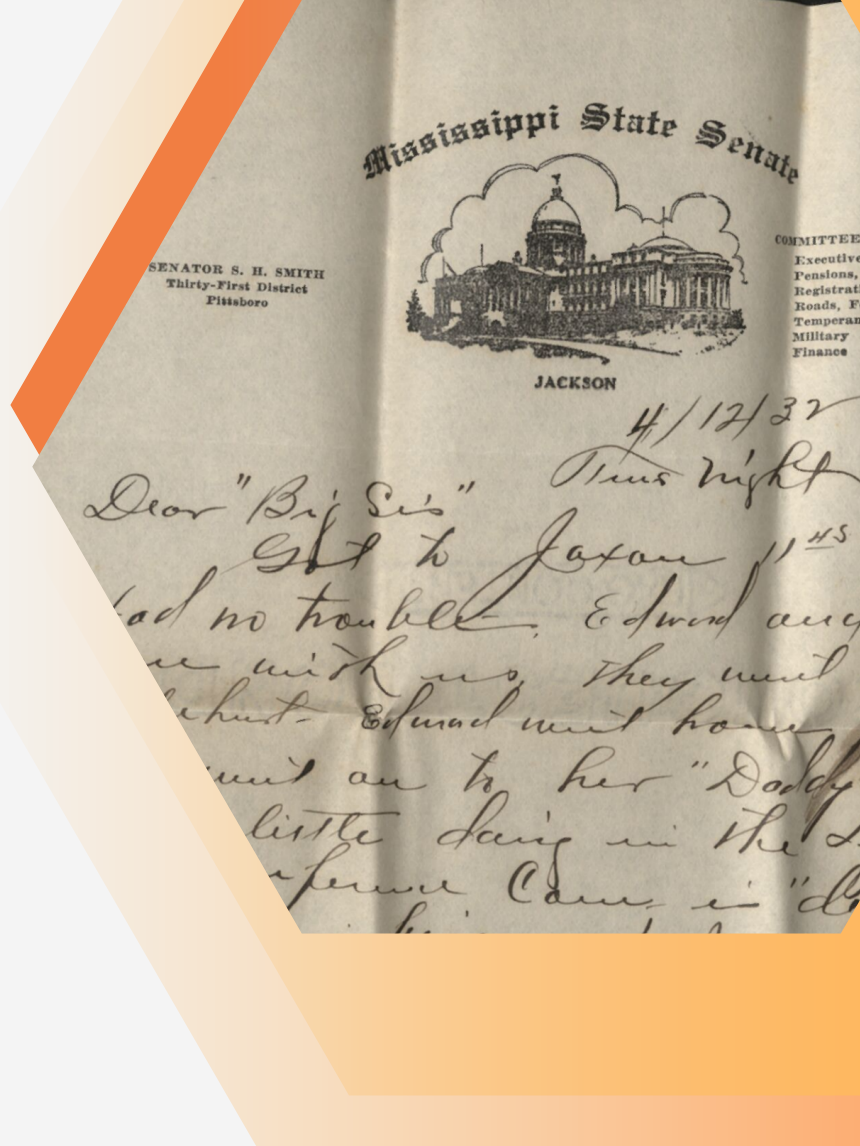 Mississippi State Senate
SENATOR S. H. SMITH
Thirty-First District
Pittsboro
COMMITTEE
Executive
Pensions,
Registrati
Roads, F
Temperan
Military
Finance
JACKSON
4/12/32
Tues Night
Dear "Big Sis"
Got to Jaxon 11 45
had no trouble. Edward and
with us, they went
Edward went home
went on to her "Daddy
little doing in the S
Com. is "d